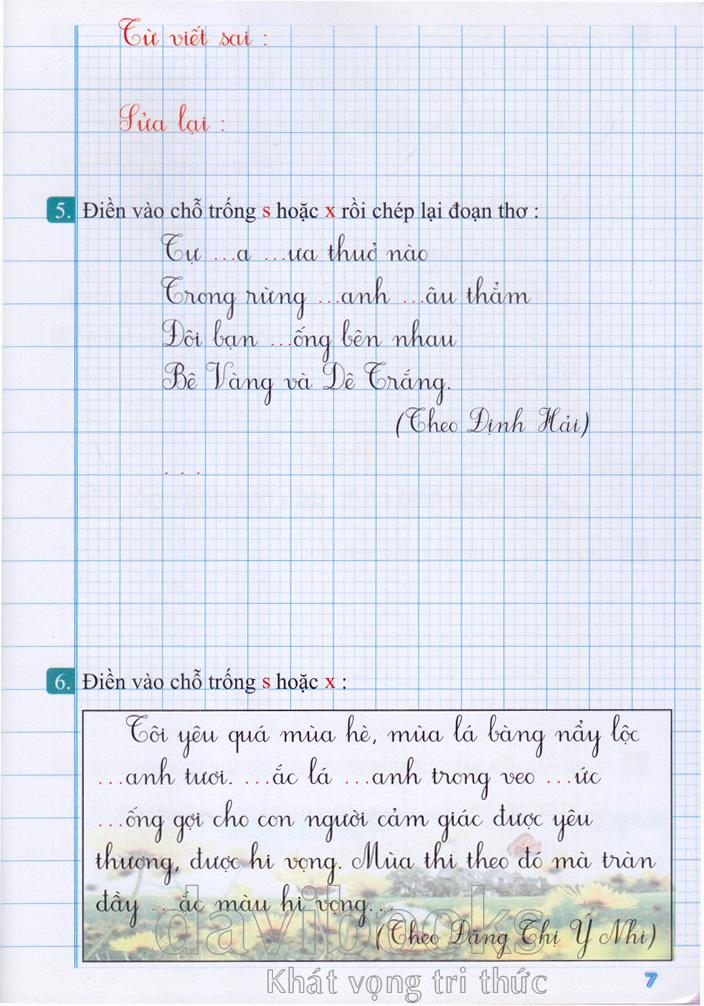 Từ viết sai :
Sửa lại :
5. Điền vào chỗ trống s hoặc x rồi chép lại đoạn thơ :
Tự ...a ...ưa thuở nào
Trong rừng ...anh ...âu thẳm
Đôi bạn ...ống bên nhau
Bê Vàng và Dê Trắng.
(Theo Định Hải)
...
6. Điền vào chỗ trống s hoặc x :
Tôi yêu quá mùa hè, mùa lá bàng nẩy lộc
...anh tươi. ...ắc lá ...anh trong veo ...ức
...ống gợi cho con người cảm giác được yêu
thương, được hi vọng. Mùa thi theo đó mà tràn
đầy ...ắc màu hi vọng...
(Theo Đặng Thị Ý Nhi)
davibooks
Khát vọng tri thức
7